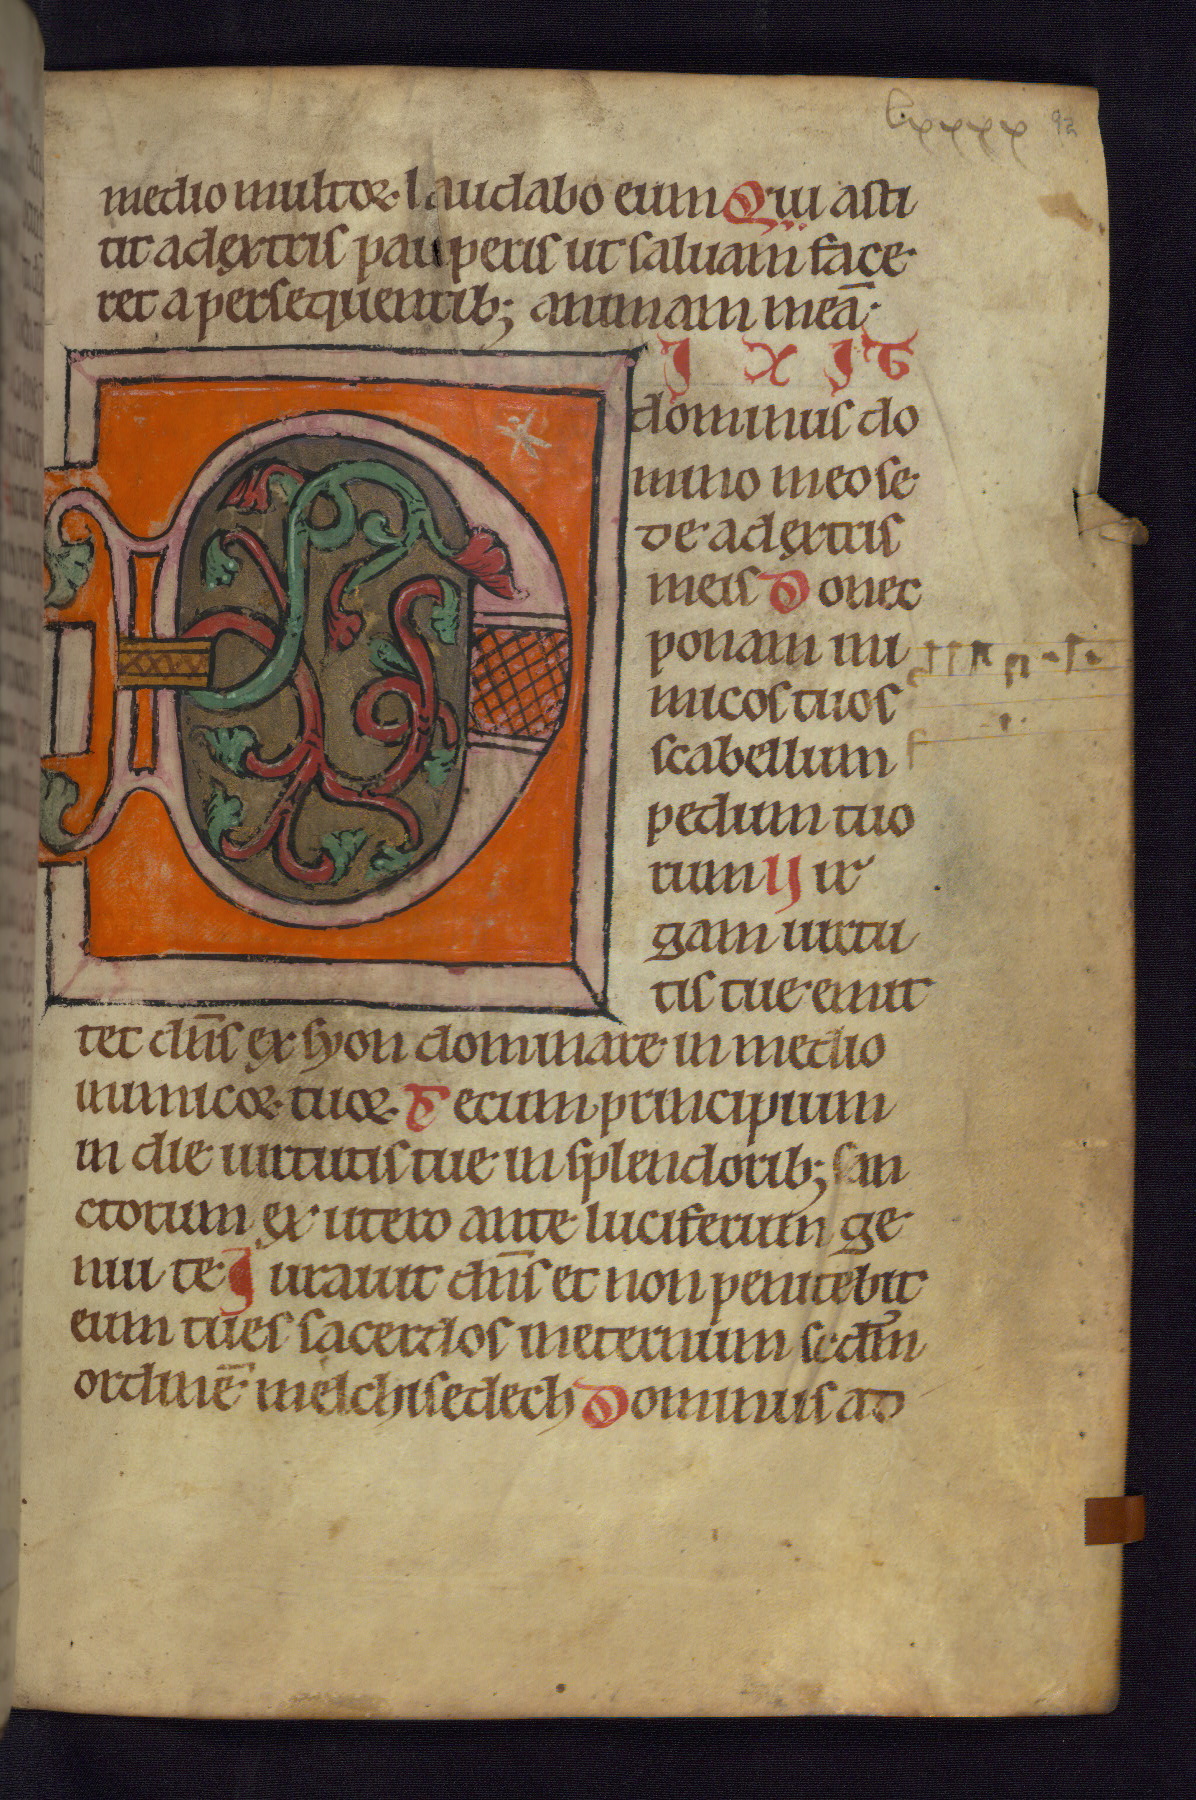 lxxxx 92
medio multoꝝ laudabo eum Qui asti
tit adextris pauperis ut saluam face
ret apersequentib; animam meā
D IXIT
dominus do
mino meo se
de adextris
meis Donec
ponam ini
micos tuos
scabellum
pedum tuo
rum Uir
gam uirtu
tis tue emit
tet dn̄s ex syon dominare in medio
inimicoꝝ tuoꝝ Tecum principium
in die uirtutis tue in splendorib; san
ctorum ex utero ante luciferum ge
nui te Iurauit dn̄s et non penitebit
eum tu es sacerdos ineternum scdm̄
ordinē melchisedech Dominus ad